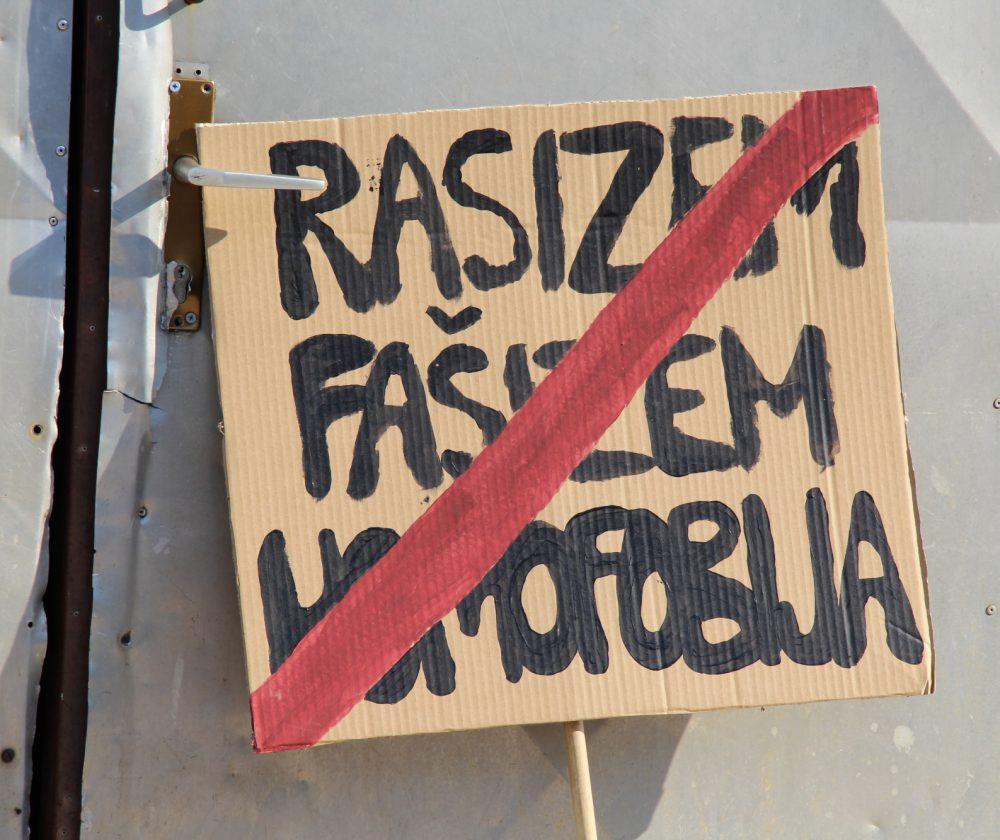 RASIZEM
FAŠIZEM
HOMOFOBIJA